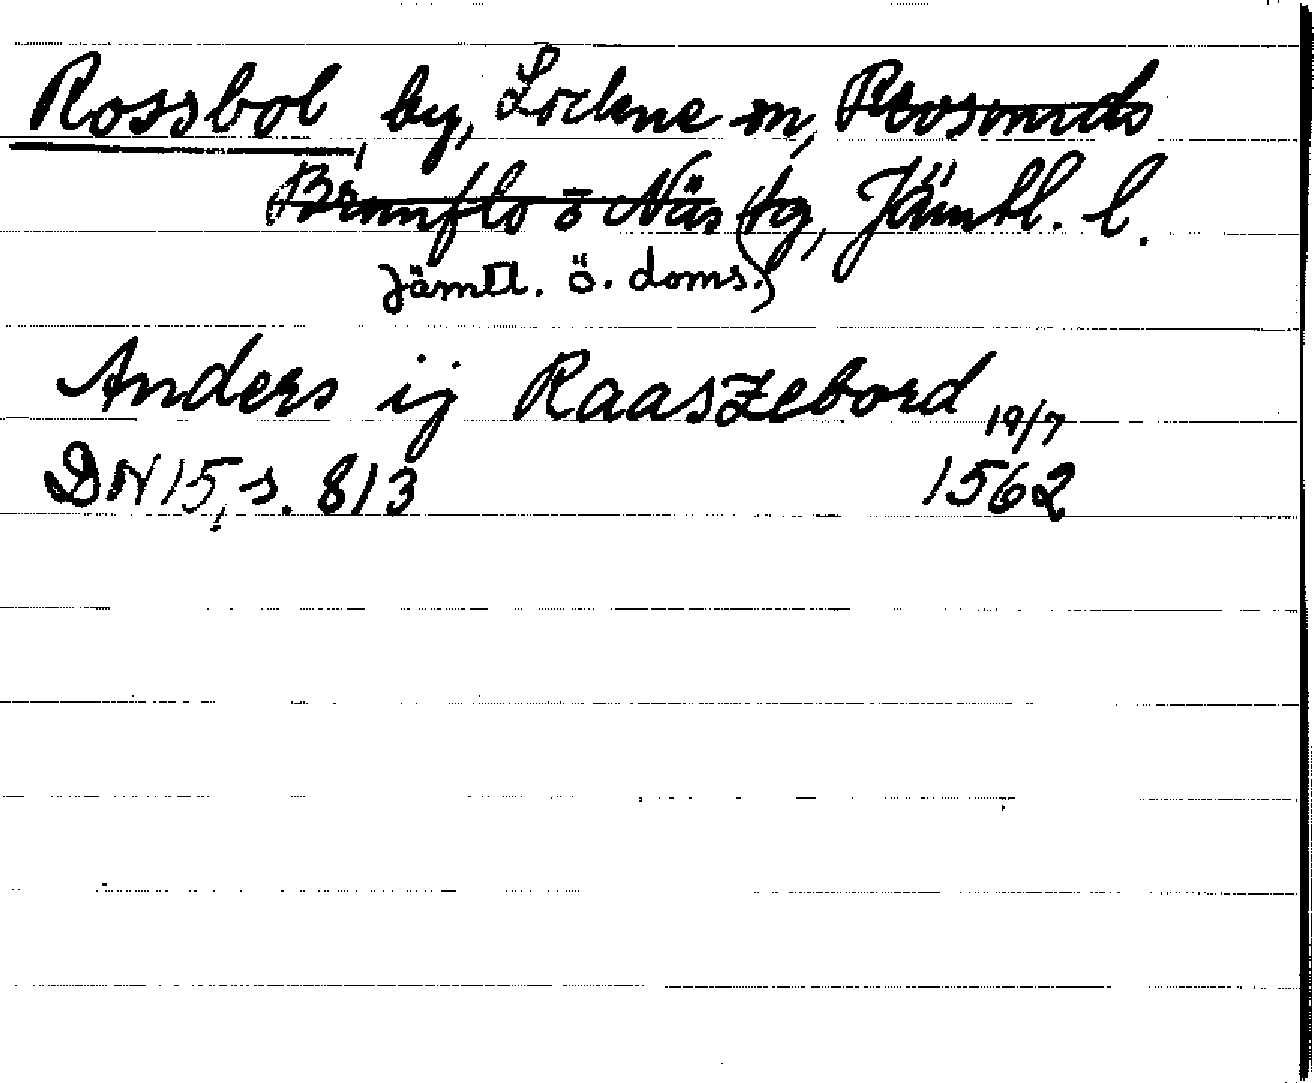 Rossbol, by, Lockne sn, Revsunds
Brunflo o Näs tg, Jämtl. l.
Jämtl. ö. doms.
Anders ij Raaszebord 19/7
DN 15, s. 813 1562